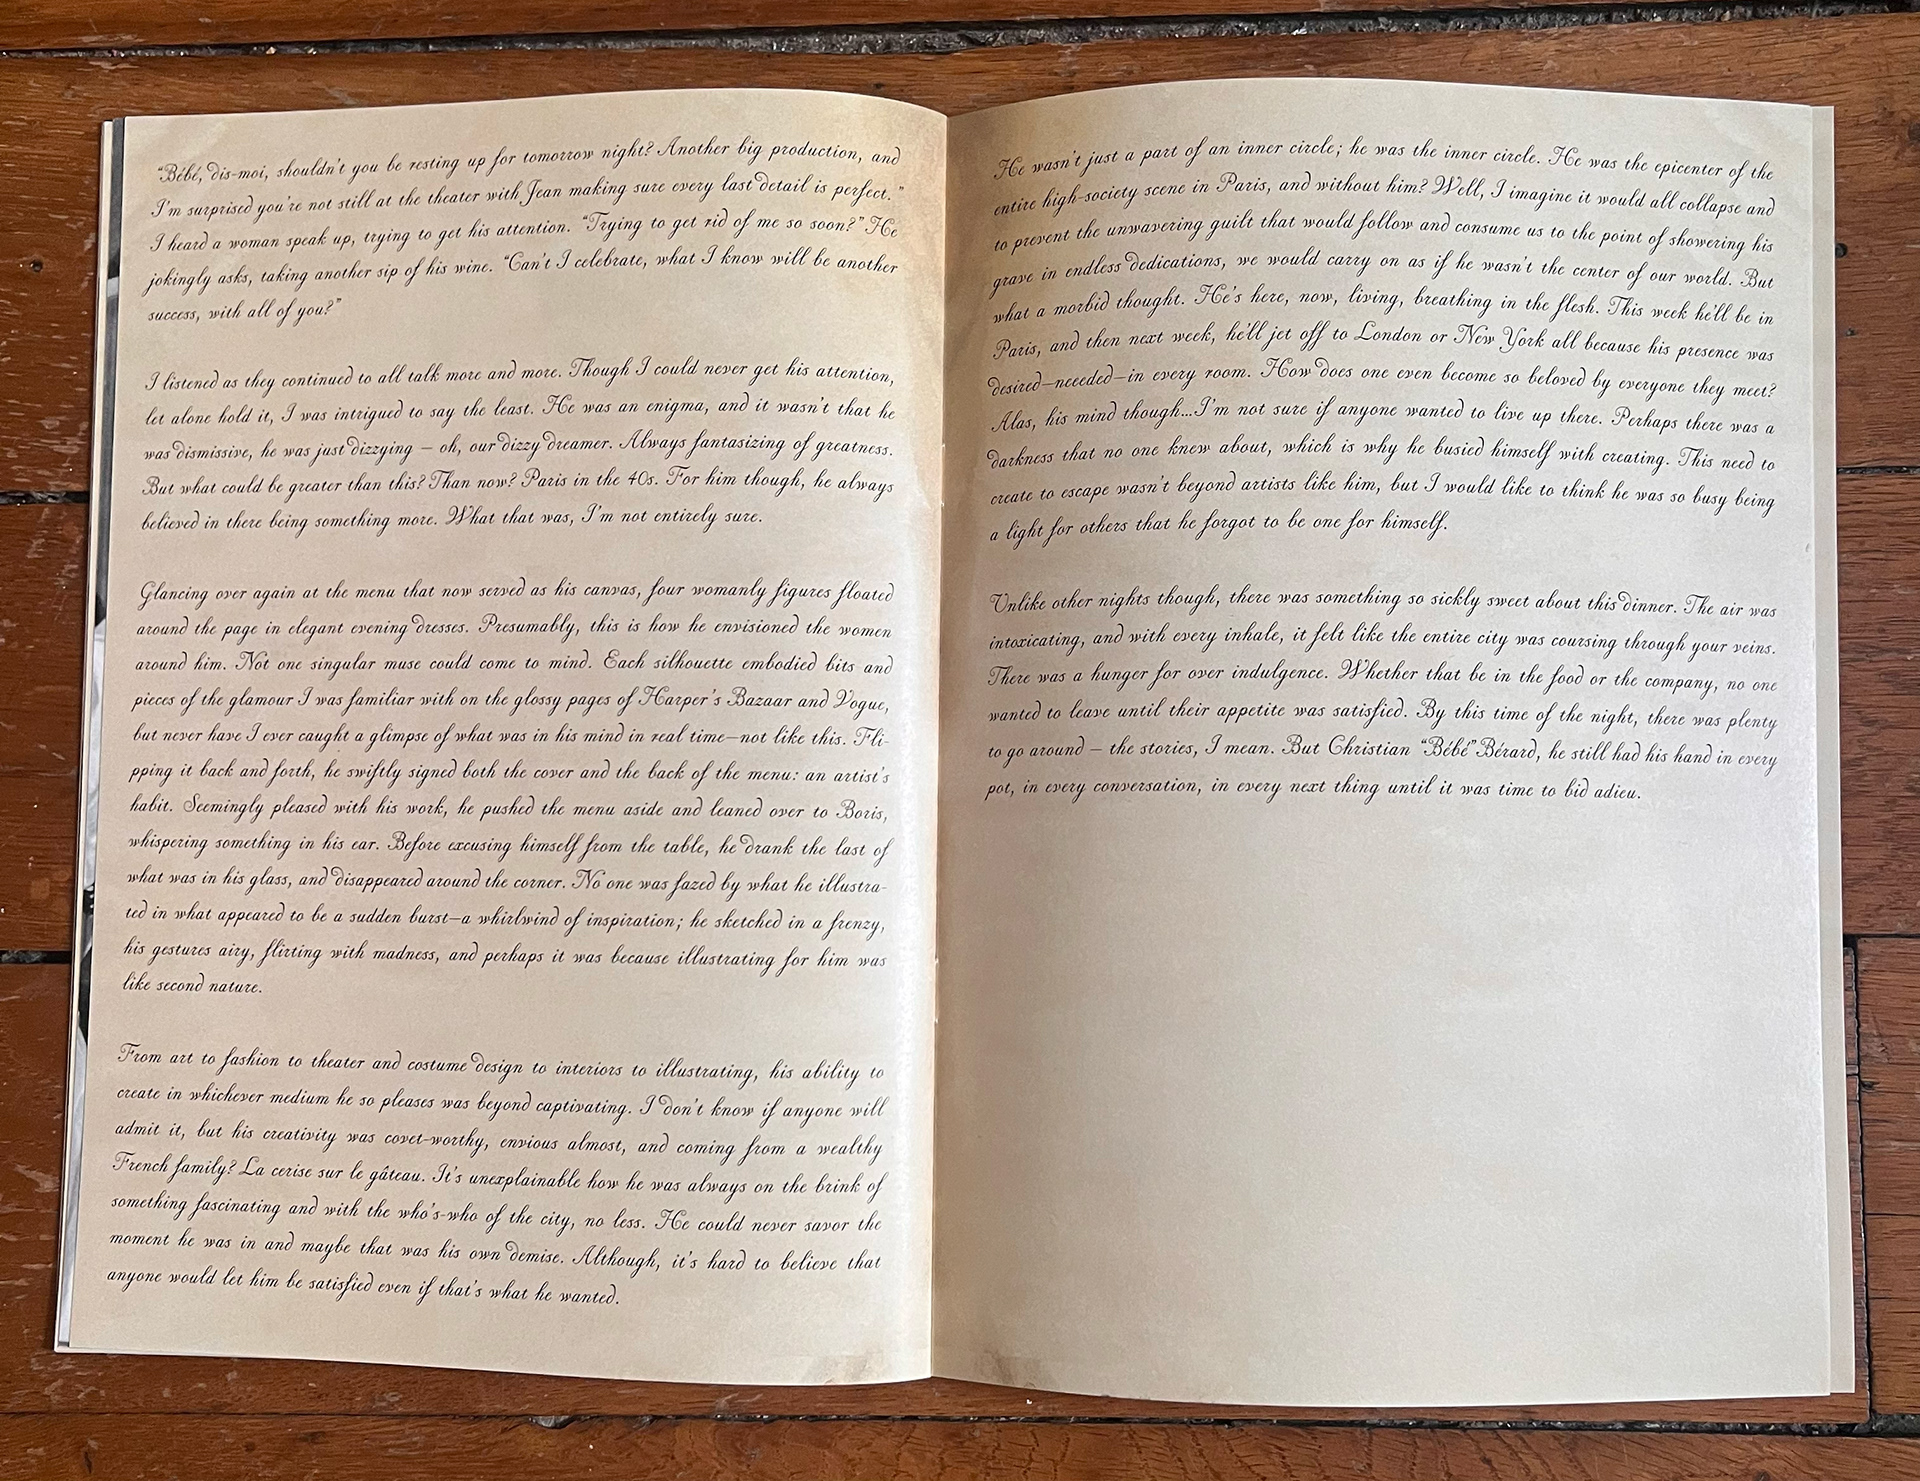 “Bébé, dis-moi, shouldn't you be resting up for tomorrow night? Another big production, and
I'm surprised you're not still at the theater with Jean making sure every last detail is perfect.”
I heard a woman speak up, trying to get his attention. “Trying to get rid of me so soon?” He
jokingly asks, taking another sip of his wine. “Can't I celebrate, what I know will be another
success, with all of you?”
I listened as they continued to all talk more and more. Though I could never get his attention,
let alone hold it, I was intrigued to say the least. He was an enigma, and it wasn't that he
was dismissive, he was just dizzying – oh, our dizzy dreamer. Always fantasizing of greatness.
But what could be greater than this? Than now? Paris in the 40s. For him though, he always
believed in there being something more. What that was, I'm not entirely sure.
Glancing over again at the menu that now served as his canvas, four womanly figures floated
around the page in elegant evening dresses. Presumably, this is how he envisioned the women
around him. Not one singular muse could come to mind. Each silhouette embodied bits and
pieces of the glamour I was familiar with on the glossy pages of Harper's Bazaar and Vogue,
but never have I ever caught a glimpse of what was in his mind in real time—not like this. Fli-
pping it back and forth, he swiftly signed both the cover and the back of the menu: an artist's
habit. Seemingly pleased with his work, he pushed the menu aside and leaned over to Boris,
whispering something in his ear. Before excusing himself from the table, he drank the last of
what was in his glass, and disappeared around the corner. No one was fazed by what he illustra-
ted in what appeared to be a sudden burst—a whirlwind of inspiration; he sketched in a frenzy,
his gestures airy, flirting with madness, and perhaps it was because illustrating for him was
like second nature.
From art to fashion to theater and costume design to interiors to illustrating, his ability to
create in whichever medium he so pleases was beyond captivating. I don't know if anyone will
admit it, but his creativity was covet-worthy, envious almost, and coming from a wealthy
French family? La cerise sur le gâteau. It's unexplainable how he was always on the brink of
something fascinating and with the who's-who of the city, no less. He could never savor the
moment he was in and maybe that was his own demise. Although, it's hard to believe that
anyone would let him be satisfied even if that's what he wanted.
He wasn't just a part of an inner circle; he was the inner circle. He was the epicenter of the
entire high-society scene in Paris, and without him? Well, I imagine it would all collapse and
to prevent the unwavering guilt that would follow and consume us to the point of showering his
grave in endless dedications, we would carry on as if he wasn't the center of our world. But
what a morbid thought. He's here, now, living, breathing in the flesh. This week he'll be in
Paris, and then next week, he'll jet off to London or New York all because his presence was
desired—neeeded—in every room. How does one even become so beloved by everyone they meet?
Alas, his mind though...I'm not sure if anyone wanted to live up there. Perhaps there was a
darkness that no one knew about, which is why he busied himself with creating. This need to
create to escape wasn't beyond artists like him, but I would like to think he was so busy being
a light for others that he forgot to be one for himself.
Unlike other nights though, there was something so sickly sweet about this dinner. The air was
intoxicating, and with every inhale, it felt like the entire city was coursing through your veins.
There was a hunger for over indulgence. Whether that be in the food or the company, no one
wanted to leave until their appetite was satisfied. By this time of the night, there was plenty
to go around – the stories, I mean. But Christian “Bébé” Bérard, he still had his hand in every
pot, in every conversation, in every next thing until it was time to bid adieu.